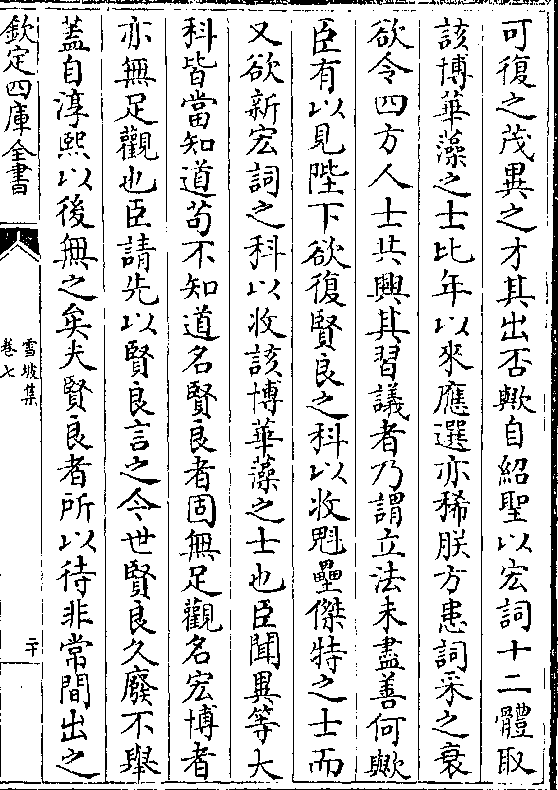 可復之茂異之才其出否歟自紹聖以宏詞十二體取
該博華藻之士比年以來應選亦稀朕方患詞采之衰
欲令四方人士共興其習議者乃謂立法未盡善何歟
臣有以見陛下欲復賢良之科以收魁壘傑特之士而
又欲新宏詞之科以收該博華藻之士也臣聞異等大
科皆當知道茍不知道名賢良者固無足觀名宏博者
亦無足觀也臣請先以賢良言之今世賢良久廢不舉
蓋自淳熙以後無之矣夫賢良者所以待非常間出之
欽定四庫全書
雪坡集
卷七
二十